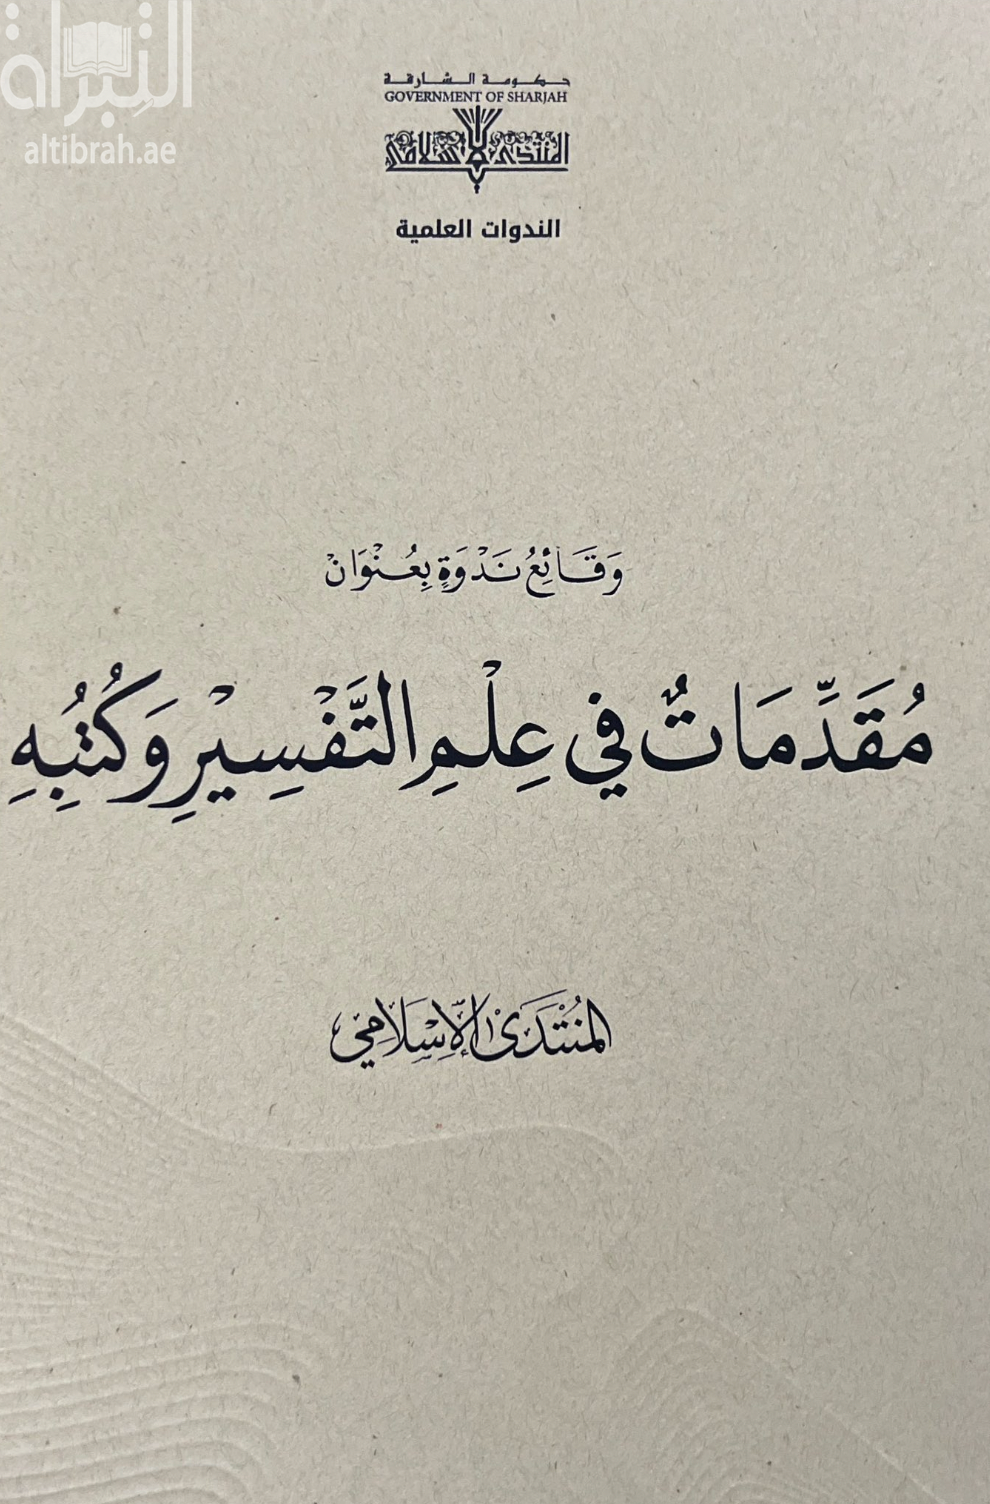 التبراة
altibrah.ae
حكومة الشارقة
GOVERNMENT OF SHARJAH
المنتدى الإسلامي
الندوات العلمية
وَقَائِعُ نَدْوَةٍ بِعُنْوَانْ
مُقَدِّمَاتٌ فِي عِلْمِ التَّفْسِيْرِ وَكُتُبِهِ
المُنْتَدَىٰ الإِسْلَامِي